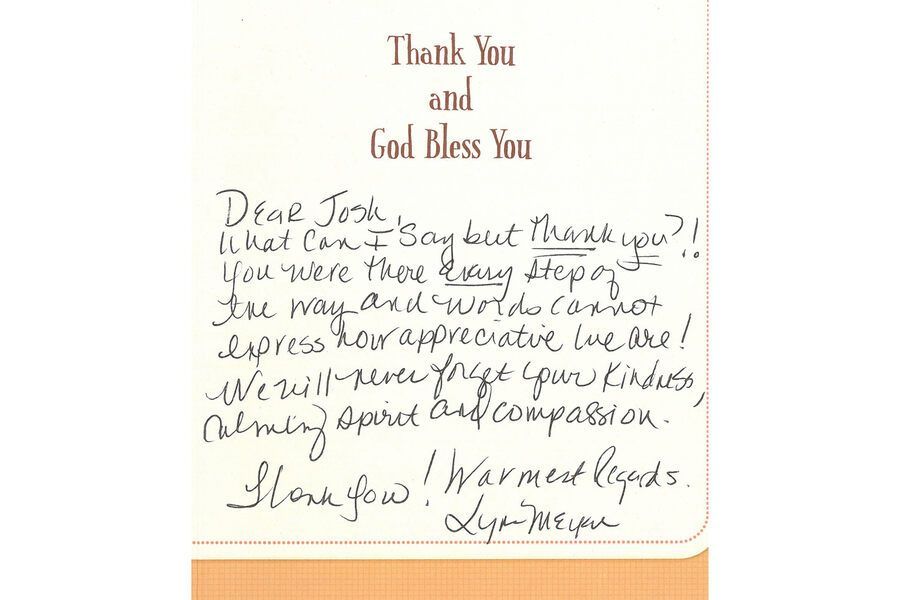 Thank You
and
God Bless You
Dear Josh,
What Can I Say but Thank you?!
You were there every step of
the way and words cannot
express how appreciative we are!
We will never forget your kindness,
calming spirit and compassion.
Thank you! Warmest Regards.
Lynn Meyer